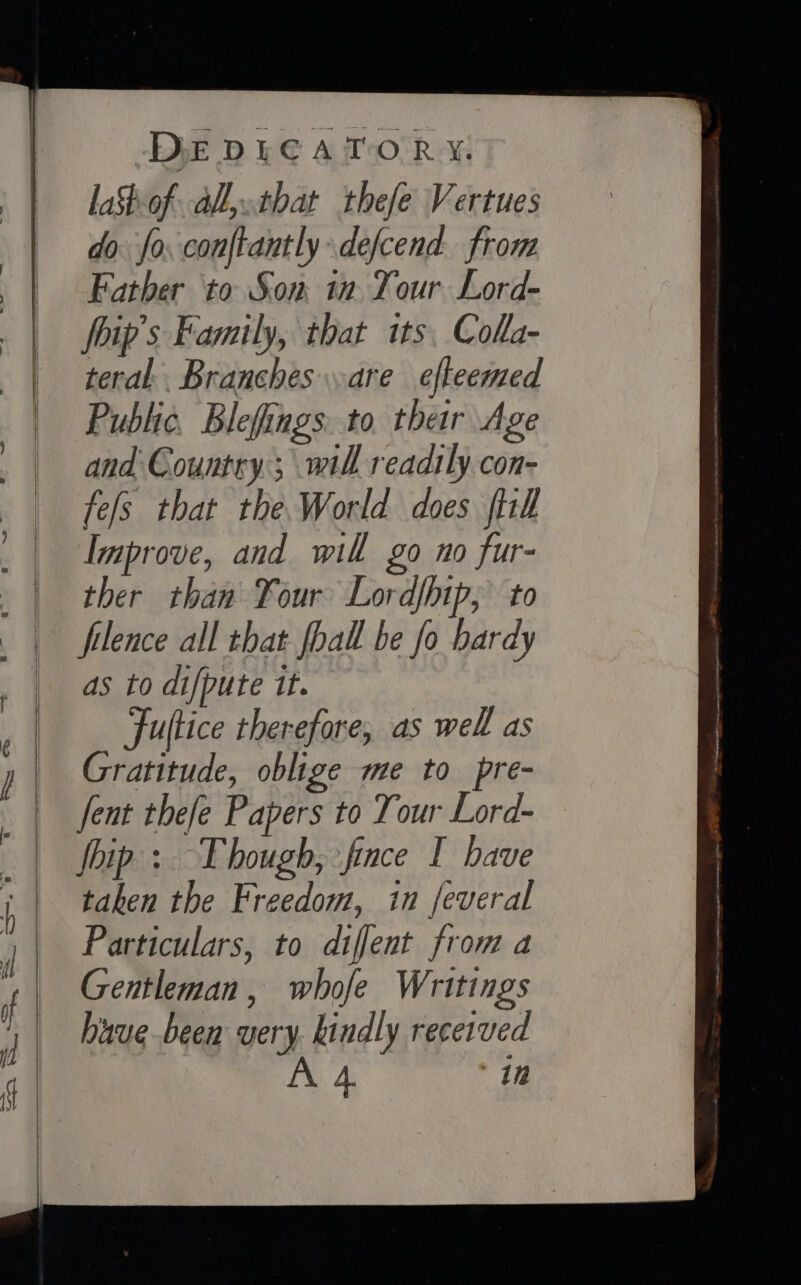 DEDICATORY.
laſt of all, that theſe Vertues
do ſo conſtantly deſcend from
Father to Son in Your Lord-
ſhip's Family, that its Colla-
teral Branches are eſteemed
Public Bleſſings to their Age
and Country; will readily con-
feſs that the World does ſtill
Improve, and will go no fur-
ther than Your Lordſhip, to
ſilence all that ſhall be ſo hardy
as to diſpute it.
Juſtice therefore, as well as
Gratitude, oblige me to pre-
ſent theſe Papers to Your Lord-
ſhip: Though, ſince I have
taken the Freedom, in ſeveral
Particulars, to diſſent from a
Gentleman, whoſe Writings
have been very kindly received
A 4 in